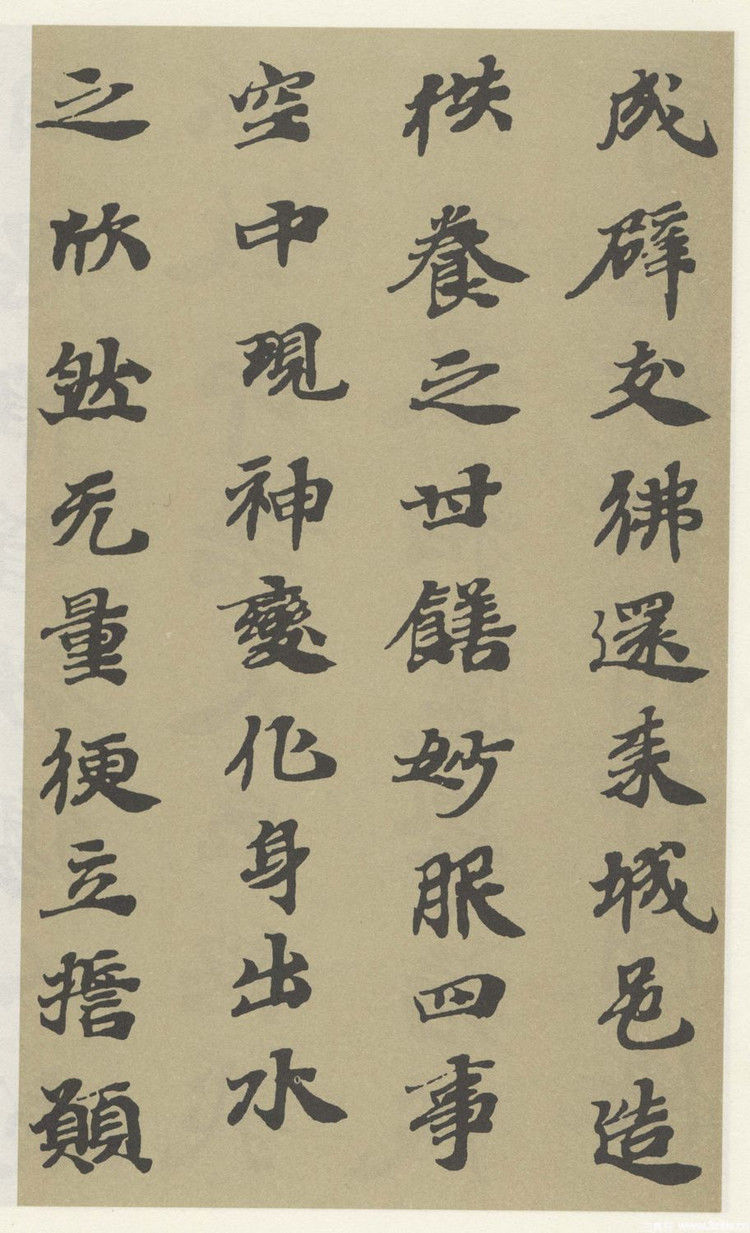 成辟支佛還来城邑造
供養之甘饍妙服四事
空中現神變化身出水
之欣然无量便立誓願